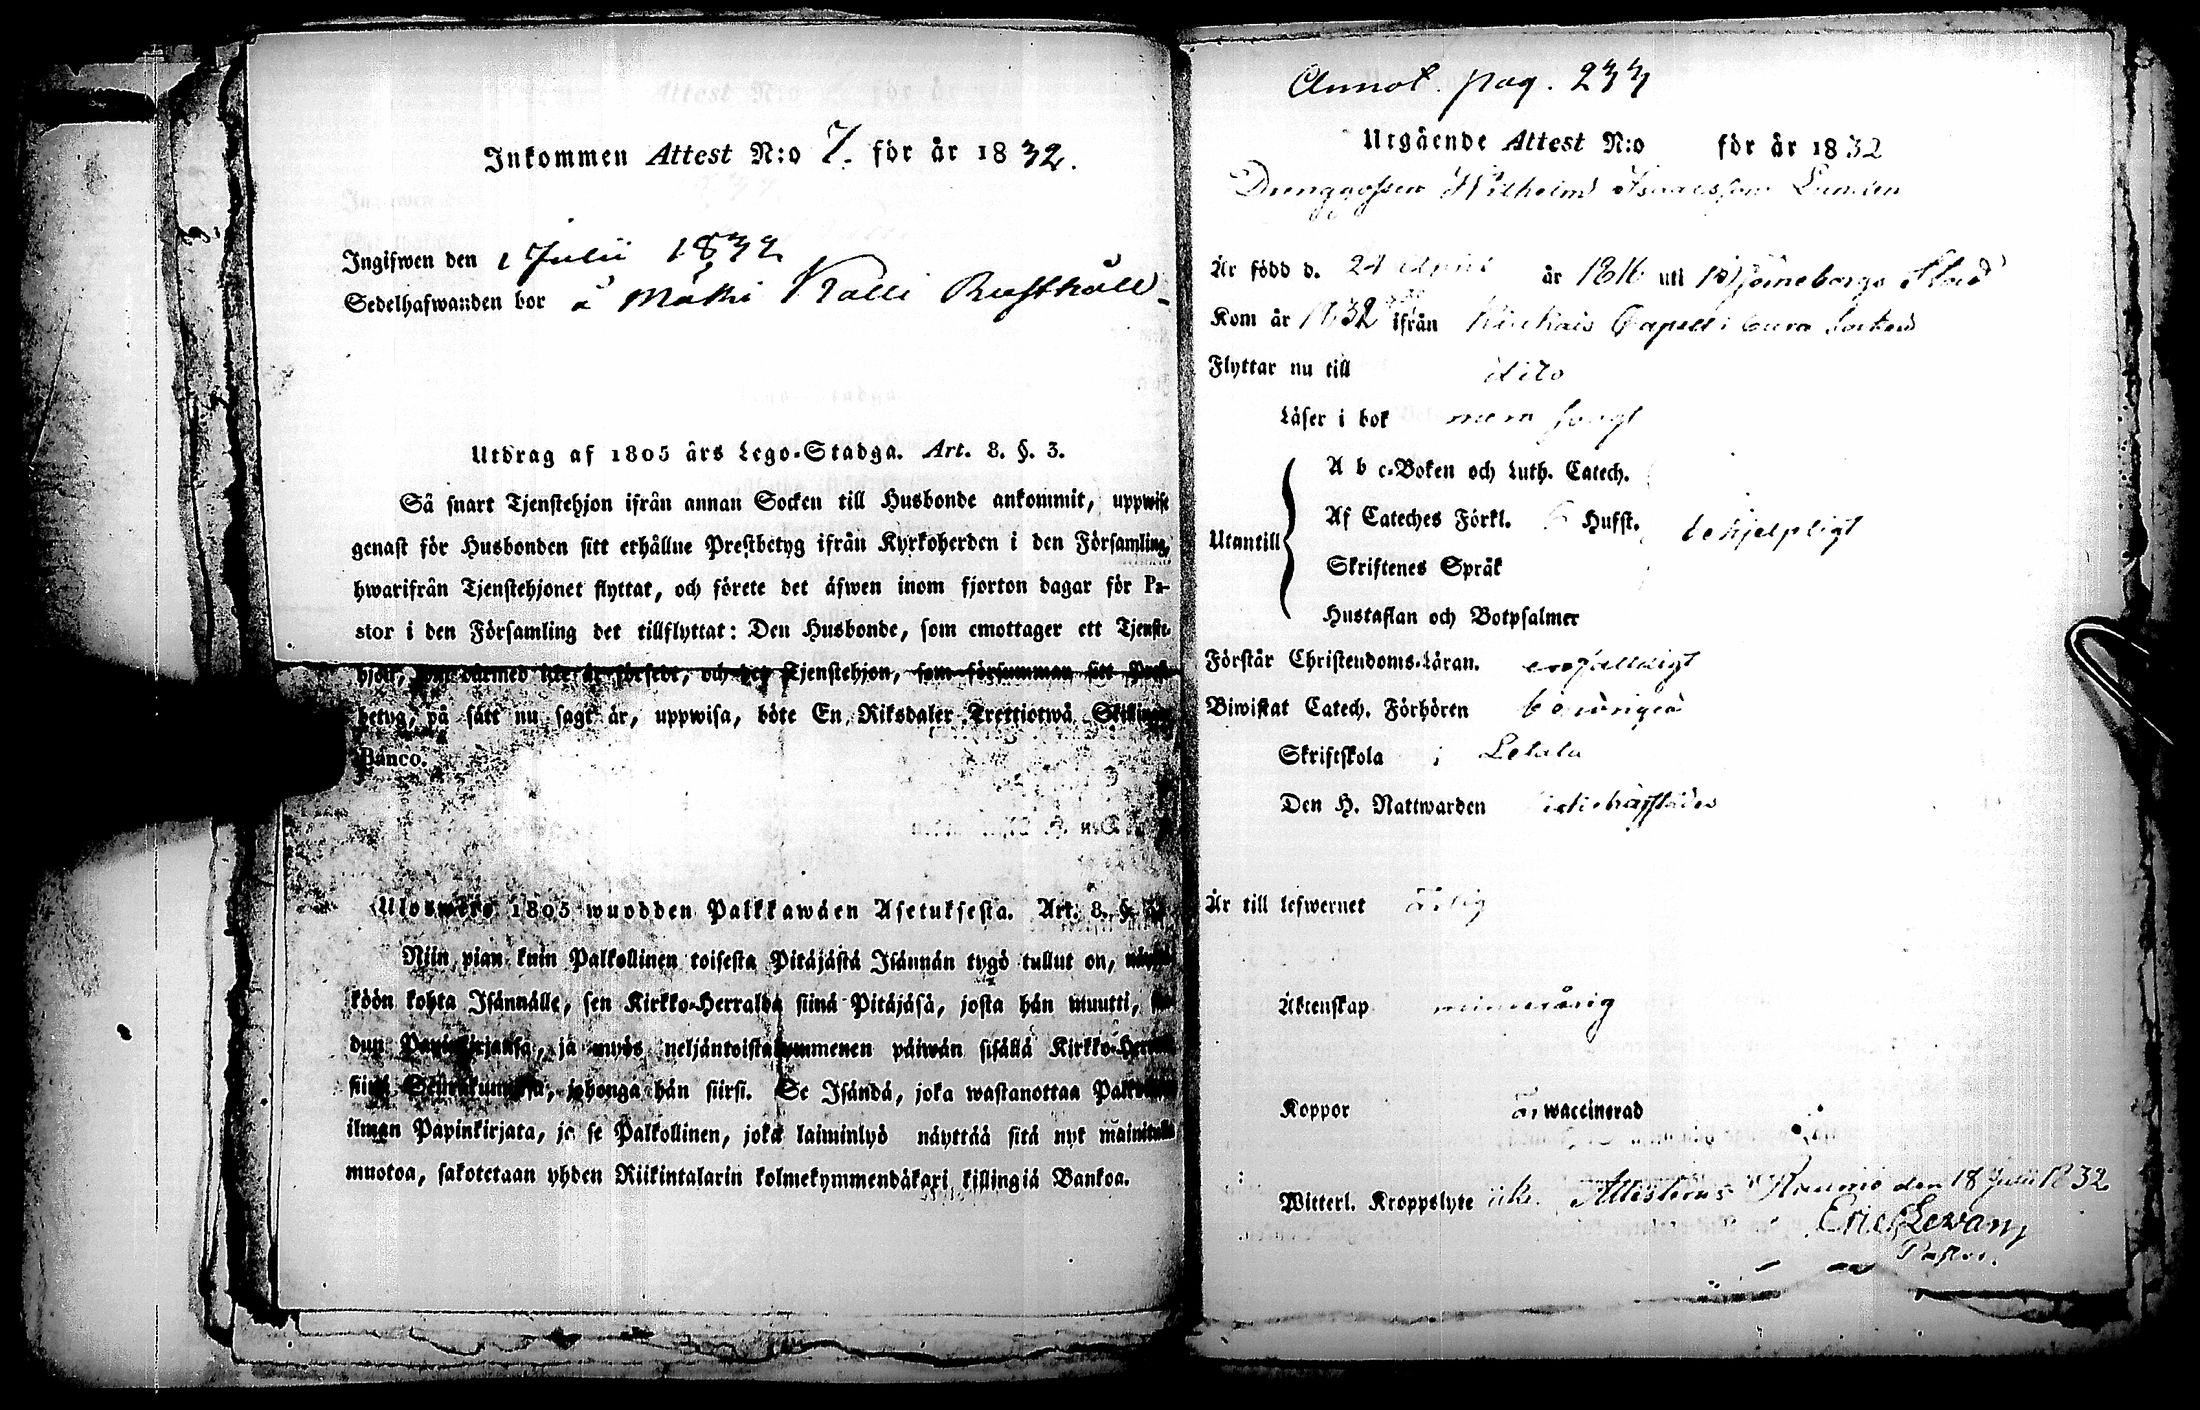 Inkommen Attest N:o 7. för år 1832.
Ingifwen den 1 Julii 1832
Sedelhafwanden bor å Mäkki Kalli Rusthåll
Utdrag af 1805 års Lego-Stadga. Art. 8. §. 3.
Så snart Tjenstehjon ifrån annan Socken till Husbonde ankommit, uppwise
genast för Husbonden sitt erhållne Prestbetyg ifrån Kyrkoherden i den Församling,
hwarifrån Tjenstehjonet flyttat, och förete det äfwen inom fjorton dagar för Pa-
stor i den Församling det tillflyttat: Den Husbonde, som emottager ett Tjenste-
hjon, som därmed icke är försedt, och det Tjenstehjon, som försummar sitt Prest-
betyg, på sätt nu sagt är, uppwisa, böte En Riksdaler Trettiotwå Skillingar
Banco.
Uloswero 1805 wuodden Palkkawäen Asetuksesta. Art. 8. §.
Niin pian kuin Palkollinen toisesta Pitäjästä Isännän tygö tullut on, näyttä-
köön kohta Isännälle, sen Kirkko-Herralda siinä Pitäjäsä, josta hän muutti,
dun Papinkirjansa, ja myös neljäntoistakymmenen päiwän sisällä Kirkko-Herralle
siinä Seurakunnassa, johonga hän siirsi. Se Isändä, joka wastanottaa Palkollisen
ilman Papinkirjata, ja se Palkollinen, joka laiminlyö näyttää sitä nyt mainitulla
muotoa, sakotetaan yhden Riikintalarin kolmekymmendäkaxi killingiä Bankoa.
Annot. pag. 233
Utgående Attest N:o för år 1832
Drenggossen Wilhelm Isaacsson Lunden
Är född d. 24 April år 1816 uti Björneborgs Stad
Kom år 1832 ifrån Capell i Eura Socken
Flyttar nu till dito
Läser i bok mera swagt
Utantill
A b c-Boken och Luth. Catech.
Af Cateches Förkl. 6 Hufst. behjelpligt
Skriftenes Språk
Hustaflan och Botpsalmer
Förstår Christendoms-Läran. enfalldigt
Biwistat Catech. Förhören
Skriftskola i Letala
Den H. Nattwarden
Är till lefwernet ärlig
Äktenskap minderårig
Koppor är waccinerad
Witterl. Kroppslyte icke. Attesteras Raumo den 18 Julii 1832
Eric Lewan,
Pastor.